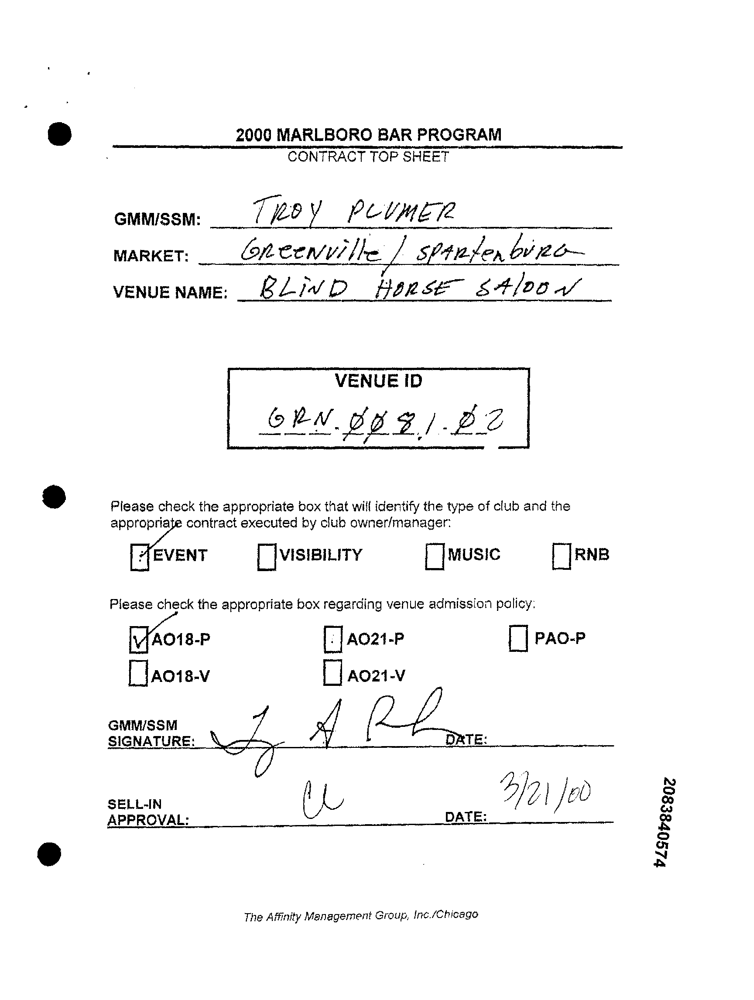 2000 MARLBORO BAR PROGRAM
CONTRACT TOP SHEET
GMM/SSM: TROY PLUMER
MARKET: GREENVILLE / SPARTENBURG
VENUE NAME: BLIND HORSE SALOON
VENUE ID
GRN.0081.02
Please check the appropriate box that will identify the type of club and the
appropriate contract executed by club owner/manager:
EVENT VISIBILITY MUSIC RNB
Please check the appropriate box regarding venue admission policy:
AO18-P AO21-P PAO-P
AO18-V AO21-V
GMM/SSM
SIGNATURE: DATE:
SELL-IN
APPROVAL: DATE: 3/21/00
2083840574
The Affinity Management Group, Inc./Chicago